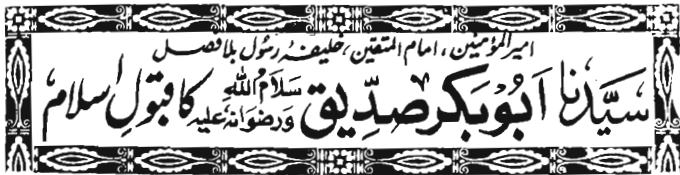 امیرالمؤمنین، امام المتقین، خلیفۂ رسول بلا فصل
سیّدنا ابوبکر صدّیق سلام اللہ ورضوانہ علیہ کا قبولِ اسلام